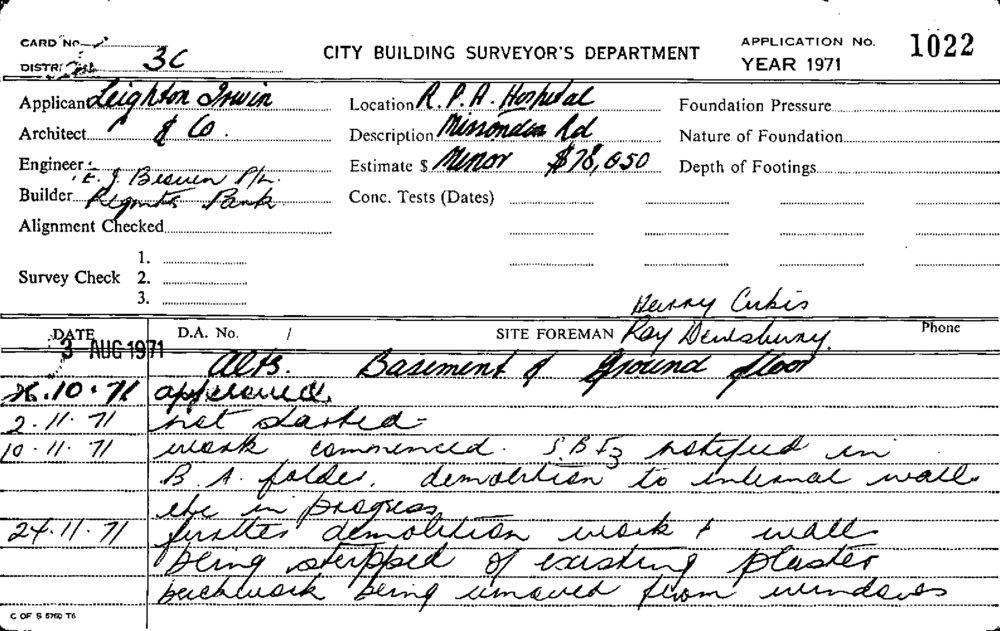 CARD No.
CITY BUILDING SURVEYOR'S DEPARTMENT
APPLICATION No. 1022
DISTRICT 3C
YEAR 1971
Applicant Leighton Irwin
Location R. P. A. Hospital
Foundation Pressure
Architect & Co.
Description Missenden Rd
Nature of Foundation
Engineer E. J. P/L.
Estimate $ Minor $78,050
Depth of Footings
Builder Regents Park
Conc. Tests (Dates)
Alignment Checked
1.
Survey Check 2.
3.
Harry Cubis
DATE
D.A. No. /
SITE FOREMAN Ray Dewsbury
Phone
3 AUG 1971
Alts. Basement & Ground floor
26.10.71 approved.
2.11.71 not started
10.11.71 work commenced. S.B.I3 notified in
B.A. folder, demolition to internal walls
etc in progress
24.11.71 further demolition work & walls
being stripped of existing plaster
brickwork being removed from windows
C OF S 5750 T6